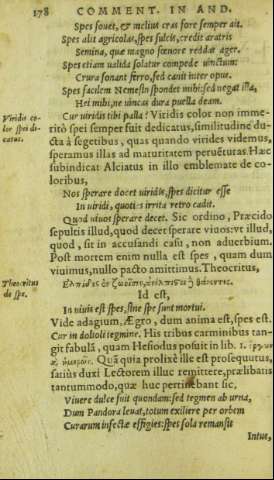 178 COMMENT. IN AND.
Spes fouet, & melius cras fore semper ait.
Spes alit agricolas, spes sulcis, credit aratris
Semina, quæ magno fœnore reddat ager.
Spes etiam ualida solatur compede uinctum:
Crura sonant ferro, sed canit inter opus.
Spes facilem Nemesin spondet mihi: sed negat illa,
Hei mihi, ne uincas dura puella deam.
Cur uiridis tibi palla? Viridis color non imme-
Viridis co-
lor spei di-
catus.
ritò spei semper fuit dedicatus, similitudine du-
cta à segetibus, quas quando virides videmus,
speramus illas ad maturitatem peruēturas. Hæc
subindicat Alciatus in illo emblemate de co-
loribus,
Nos sperare docet uiridis, spes dicitur esse
In uiridi, quoties irrita retro cadit.
Quod uiuos sperare decet. Sic ordino, Præcido
sepultis illud, quod decet sperare viuos: vt illud,
quod, sit in accusandi casu, non aduerbium.
Post mortem enim nulla est spes, quam dum
viuimus, nullo pacto amittimus. Theocritus,
Theocritus
de spe.
Id est,
In uiuis est spes, sine spe sunt mortui.
Vide adagium, Ægro, dum anima est, spes est.
Cur in dolioli tegmine. His tribus carminibus tan-
git fabulã, quam Hesiodus posuit in lib. 1.
Quã quia prolixè ille est prosequutus,
satius duxi Lectorem illuc remittere, prælibatis
tantummodo, quæ huc pertinebant sic,
Viuere dulce fuit quondam: sed tegmen ab urna,
Dum Pandora leuat, totum exiliere per orbem
Curarum infectæ effigies: spes sola remansit
Intus,